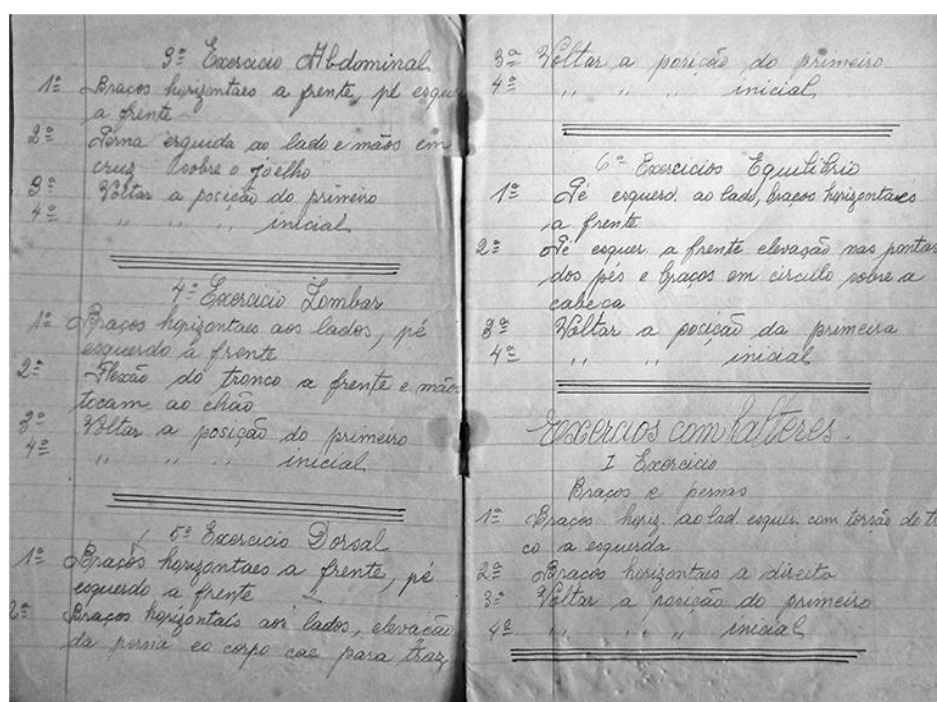 3º Exercicio Abdominal
1º Braços horizontaes a frente, pé esqu
a frente
2º Perna erguida ao lado e mãos em
cruz sobre o joelho
3º Voltar a posição do primeiro
4º " " " inicial
4º Exercicio Lombar
1º Braços horizontaes aos lados, pé
esquerdo a frente
2º Flexão do tronco a frente e mão
tocam ao chão
3º Voltar a posição do primeiro
4º " " " inicial
5º Exercicio Dorsal
1º Braços horizontaes a frente, pé
esquerdo a frente
2º Braços horizontais aos lados, elevação
da perna eo corpo cae para traz
3ª Voltar a posição do primeiro
4º " " " inicial
6º Exercicios Equilibrio
1º Pé esquerd. ao lad, braços horizontaes
a frente
2º Pé esquer. a frente elevação nas pontas
dos pés e braços em circulo sobre a
cabeça
3ª Voltar a posição da primeira
4º " " inicial
Exercios com halteres.
I Exercicio
Braços e pernas
1º Braços horiz. ao lad. esquer. com torsão do t
co a esquerda
2ª Braços horizontaes a direita
3º Voltar a posição do primeiro
4º " " " inicial